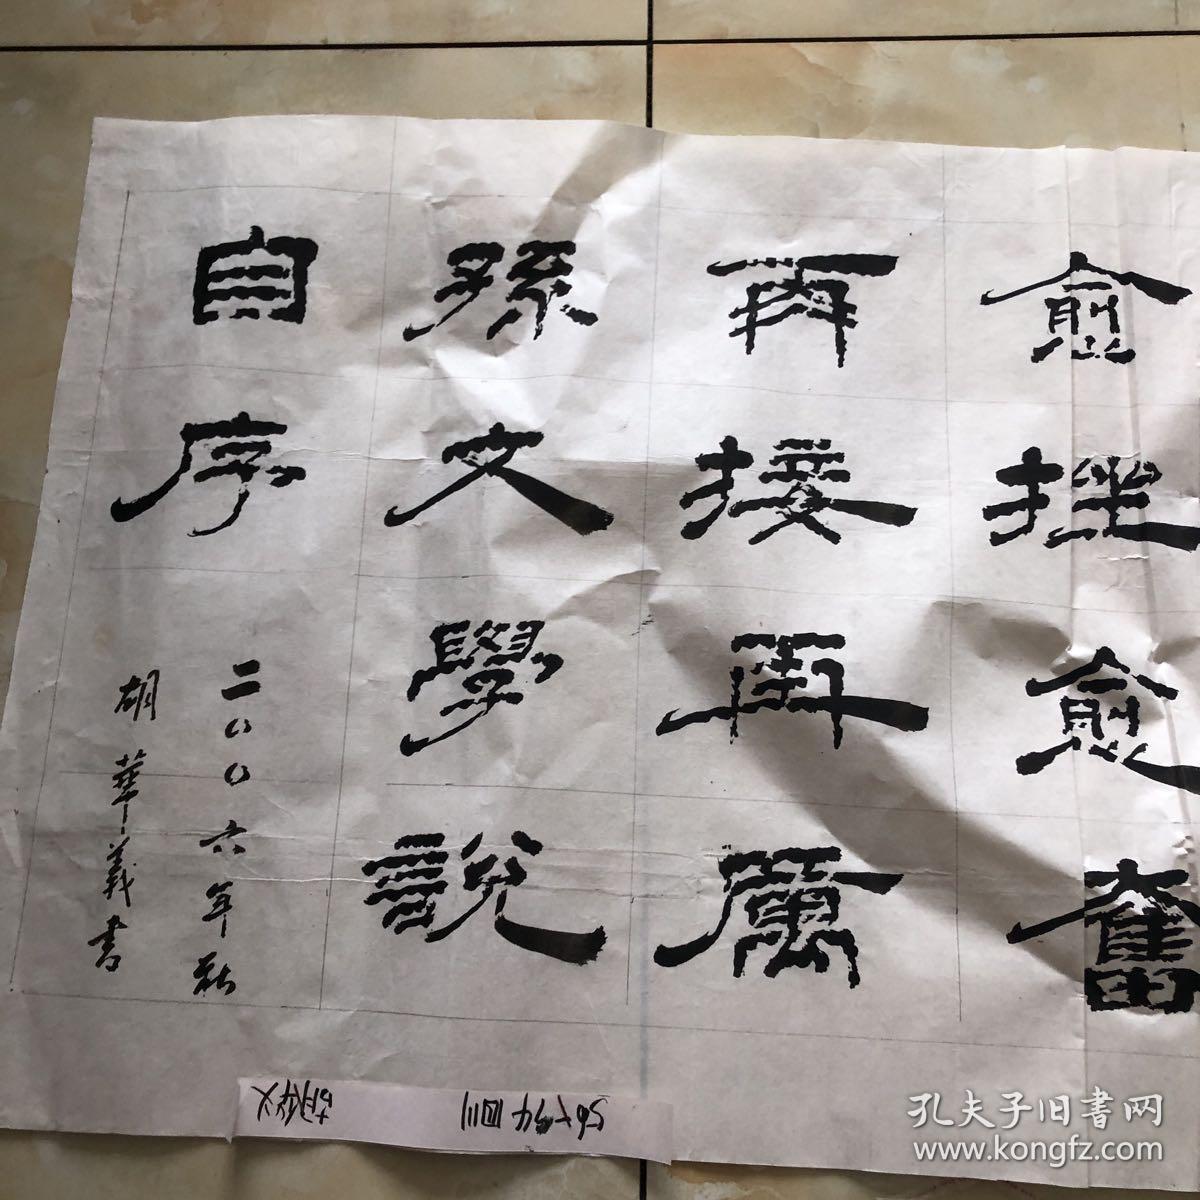 愈挫愈奮
再接再厲
孫文學說
自序
二〇〇六年秋
胡華義書
胡华义
四川
孔夫子旧書网
www.kongfz.com